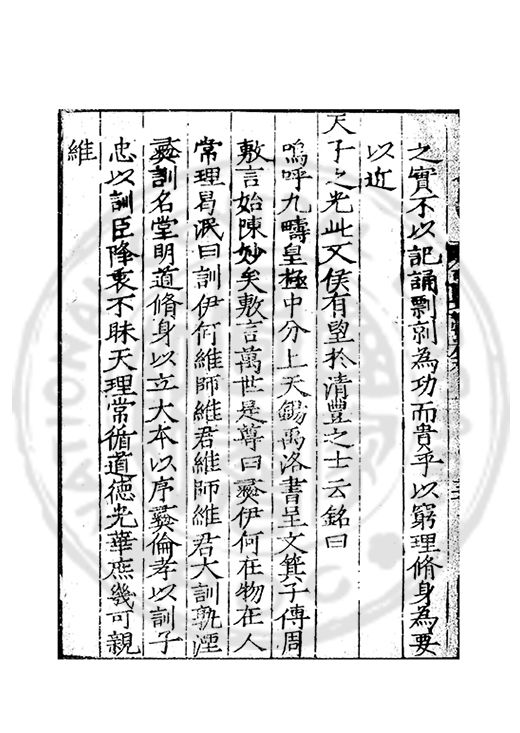 之實不以記誦剽剥為功而貴乎以窮理脩身為要
以近
天子之光此文侯有望於清豐之士云銘曰
嗚呼九疇皇極中分上天錫禹洛書呈文箕子傳周
敷言始陳妙矣敷言萬世是尊曰彜伊何在物在人
常理曷泯曰訓伊何維師維君維師維君大訓孰湮
彜訓名堂明道脩身以立大本以序彜倫孝以訓子
忠以訓臣降衷不昧天理常循道德光華庶幾可親
維